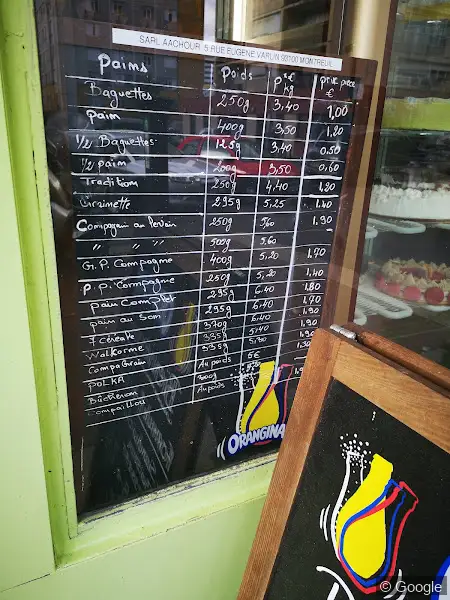 SARL AACHOUR 5 RUE EUGENE VARLIN 93100 MONTREUIL
Pains Poids P×€ kg prix pièce €
Baguettes 250g 3,40 1,00
Pain 400g 3,50 1,20
1/2 Baguettes 125g 3,40 0,50
1/2 pain 200g 3,50 0,60
Tradition 250g 4,40
295g 5,25
Campagne au levain 250g 5,60 1,90
" " " 500g 5.60
G.P. Campagne 400g 5,20 1.70
P.P. Campagne 250g 5,20 1.40
pain Complet 295g 6.40 1.80
pain au Son 295g 6,40 1.70
7 céréale 370g 6,40 1.90
Walkorme 335g 5,40 1.90
335g 5,30
POLKA Au poids 6€
Bûcheron 300g
Campaillou Au poids
ORANGINA
© Google